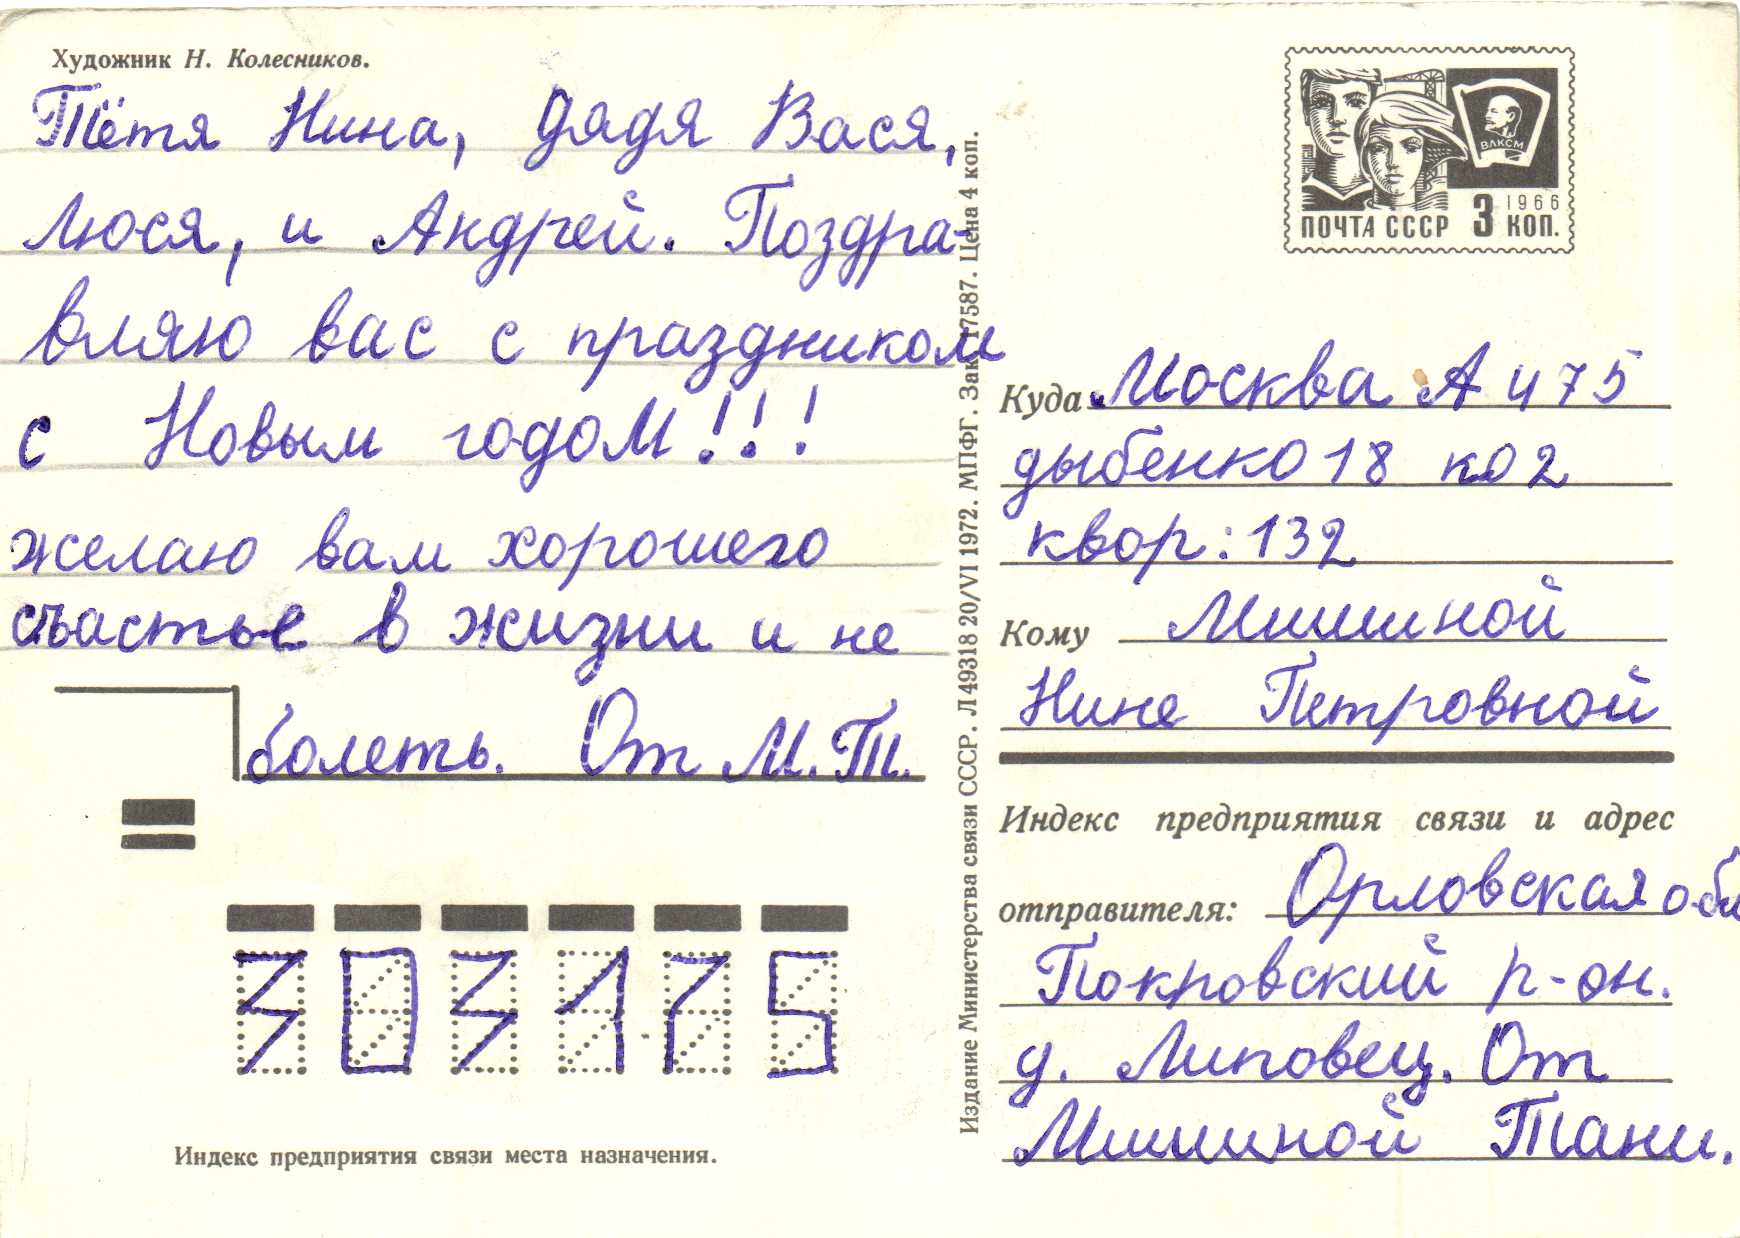 Художник Н. Колесников.
Тётя Нина, дядя Вася,
Люся, и Андрей. Поздра-
вляю вас с праздником
с Новым годом!!!
желаю вам хорошего
счастье в жизни и не
болеть. От М.Т.
303175
Индекс предприятия связи места назначения.
Издание Министерства связи СССР. Л49318 20/VI 1972. МПФГ. Зак. 17587. Цена 4 коп.
ВЛКСМ
1966
ПОЧТА СССР 3 КОП.
Куда Москва А 475
дыбенко 18 ко 2
квор: 132
Кому Мишиной
Нине Петровной
Индекс предприятия связи и адрес
отправителя: Орловская обл
Покровский р-он.
д. Липовец. От
Мишиной Тани.